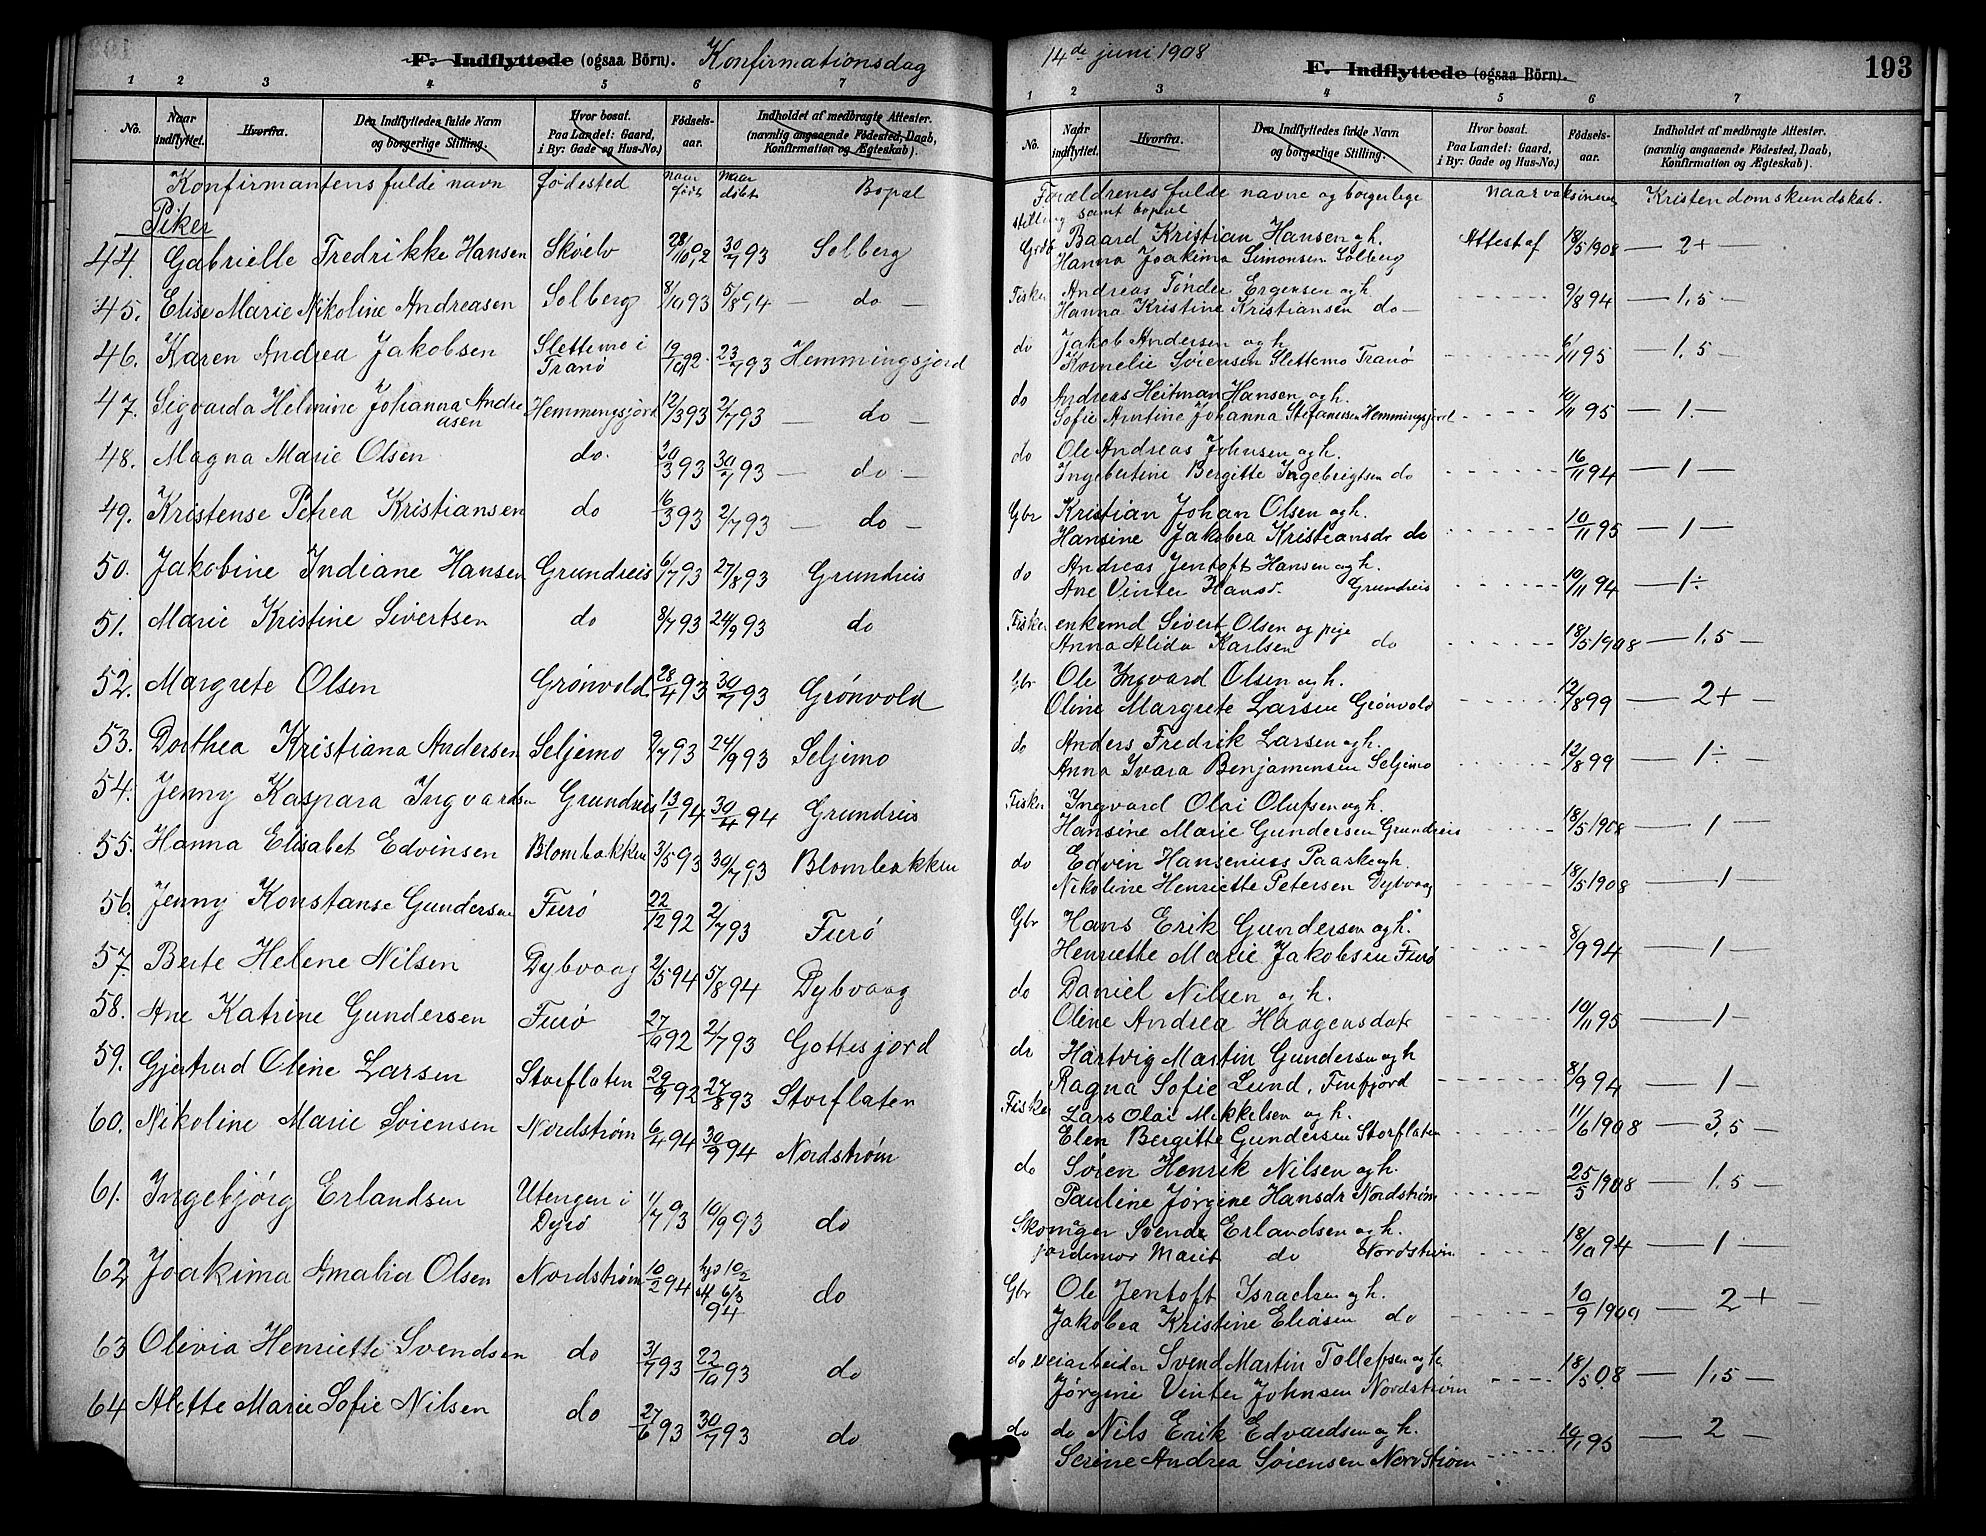 F. Indflyttede (ogsaa Börn). Konfirmationsdag
1 2 3 4 5 6 7
No. Naar indflyttet. Hvorfra. Den Indflyttedes fulde Navn og borgerlige Stilling. Hvor bosat. Paa Landet: Gaard, i By: Gade og Hus-No.) Fødselsaar. Indholdet af medbragte Attester. (navnlig angaaende Fødested, Daab, Konfirmation og Ægteskab).
Konfirmantens fulde navn fødested naar født naar døbt Bopæl
Piker
44. Gabrielle Fredrikke Hansen Skóelv 28/10 92 30/7 93 Solberg
45. Elise Marie Nikoline Andreasen Solberg 8/10 93 5/8 94 — do —
46. Karen Andrea Jakobsen Slettemo i Tranø 19/10 92 23/7 93 Hemmingsjord
47. Sigvarda Helmine Johanna Andreasen Hemmingsjord 12/3 93 2/7 93 — do —
48. Magna Marie Olsen do 20/3 93 30/7 93 — do —
49. Kristense Petrea Kristiansen do 16/3 93 2/7 93 — do —
50. Jakobine Indiane Hansen Grundreis 6/7 93 27/8 93 Grundreis
51. Marie Kristine Sivertsen do 8/7 93 24/9 93 do
52. Margrete Olsen Grønvold 28/4 93 30/7 93 Grønvold
53. Dorthea Kristiana Andersen Seljemo 9/7 93 24/9 93 Seljemo
54. Jenny Kaspara Ingvardsen Grundreis 13/1 94 30/4 94 Grundreis
55. Hanna Elisabet Edvinsen Blombakken 3/5 93 30/7 93 Blombakken
56. Jenny Konstanse Gundersen Furø 22/12 92 2/7 93 Furø
57. Berte Helene Nilsen Dybvaag 2/5 94 5/8 94 Dybvaag
58. Ane Katrine Gundersen Furø 27/9 92 2/7 93 Gottesjord
59. Gjertrud Oline Larsen Storflaten 29/9 92 27/8 93 Storflaten
60. Nikoline Marie Sörensen Nordstrøm 6/4 94 30/9 94 Nordstrøm
61. Ingebjørg Erlandsen Utengen i Dyrø 1/7 93 10/9 93 do
62 Joakima Amalia Olsen Nordstrøm 10/2 94 hjd 10/2 st 6/3 94 do
63 Olivia Henriette Svendsen do 3/7 93 22/10 93 do
64 Alette Marie Sofie Nilsen do 27/6 93 30/7 93 do
14de juni 1908
F. Indflyttede (ogsaa Börn).
193
1 2 3 4 5 6 7
No. Naar indflyttet. Hvorfra. Den Indflyttedes fulde Navn og borgerlige Stilling. Hvor bosat. Paa Landet: Gaard, i By: Gade og Hus-No.) Fødselsaar. Indholdet af medbragte Attester. (navnlig angaaende Fødested, Daab, Konfirmation og Ægteskab).
Forældrenes fulde navne og borgerlege stilling samt bopæl naar vaksineret Kristendomskundskab.
Grdb Baard Kristian Hansen og h. Attest af 18/5 1908 — 2+ —
Hanna Joakima Simonsen Solberg
Fisker Andreas Tønder Ergensen og h. 9/8 94 — 1,5 —
Hanna Kristine Kristiansen do —
do Jakob Andersen og h 6/11 95 — 1,5 —
Kornelie Sörensen Slettemo Tranø
do Andreas Heitman Hansen og h. 10/11 95 — 1 —
Sofie Arntine Johanna Stefanusen Hemmingsjord
do Ole Andreas Johnsen og h. 16/11 94 — 1 —
Ingebertine Bergitte Ingebrigtsen do
Gbr Kristian Johan Olsen og h. 10/11 95 — 1 —
Hansine Jakobea Kristiansdr do
do Andreas Jentoft Hansen og h. 10/11 94 — 1÷
Ane Vinter Hansd. Grundreis
Fisker enkemd Sivert Olsen og pige 18/5 1908 — 1,5 —
Anna Alida Karlsen do
Gbr Ole Ingvard Olsen og h. 12/8 99 — 2+ —
Oline Margrete Larsen Grönvold
do Anders Fredrik Larsen og h. 12/8 99 — 1÷
Anna Ivara Benjamensen Seljemo
Fisker Ingvard Olai Olufsen og h. 18/5 1908 — 1 —
Hansine Marie Gundersen Grundreis
do Edvin Hansenius Paaske og h. 18/5 1908 — 1 —
Nikoline Henriette Petersen Dybvaag
Gbr Hans Erik Gundersen og h. 8/9 94 — 1 —
Henriette Marie Jakobsen Furø
do Daniel Nilsen og h. 10/11 95 — 1 —
Oline Andrea Haagensdatr
do Hartvig Martin Gundersen og h 8/9 94 — 1 —
Ragna Sofie Lund, Finfjord
Fisker Lars Olai Mikkelsen og h. 11/6 1908 — 3,5 —
Elen Bergitte Gundersen Storflaten
do Søren Henrik Nilsen og h. 25/5 1908 — 1,5 —
Pauline Jørgine Hansdr Nordstrøm
Skomager Svend Erlandsen og h. 18/10 94 — 1 —
jordemor Marit do Nordstrøm
Gbr Ole Jentoft Israelsen og h. 10/9 1900 — 2+ —
Jakobea Kristine Eliasen do
do veiarbeider Svend Martin Tollefsen og h. 18/5 08 — 1,5 —
Jørgine Vinter Johnsen Nordstrøm
do do Nils Erik Edvardsen og h. 10/1 95 — 2 —
Serine Andrea Sørensen Nordstrøm